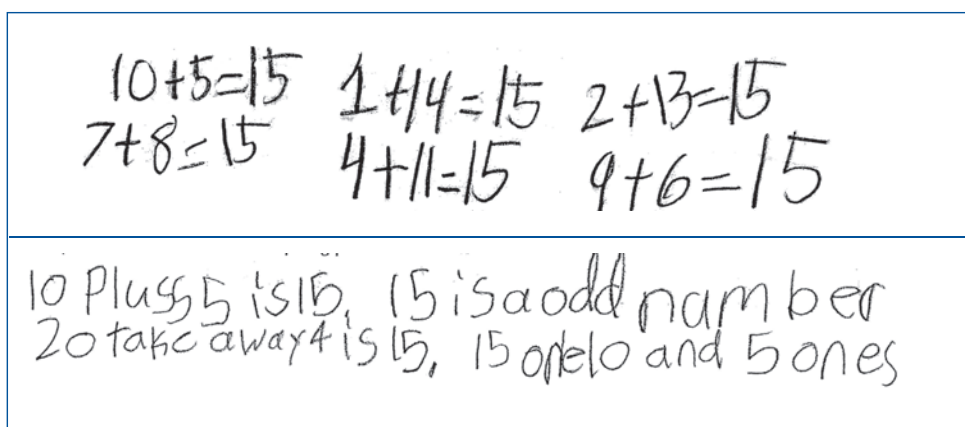 10+5=15 1+14=15 2+13=15
7+8=15 4+11=15 9+6=15
10 Pluss 5 is 15. 15 is a odd namber
20 take away 4 is 15, 15 one 10 and 5 ones